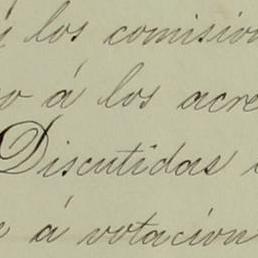 y los comision
o á los acre
Discutidas
á votacion